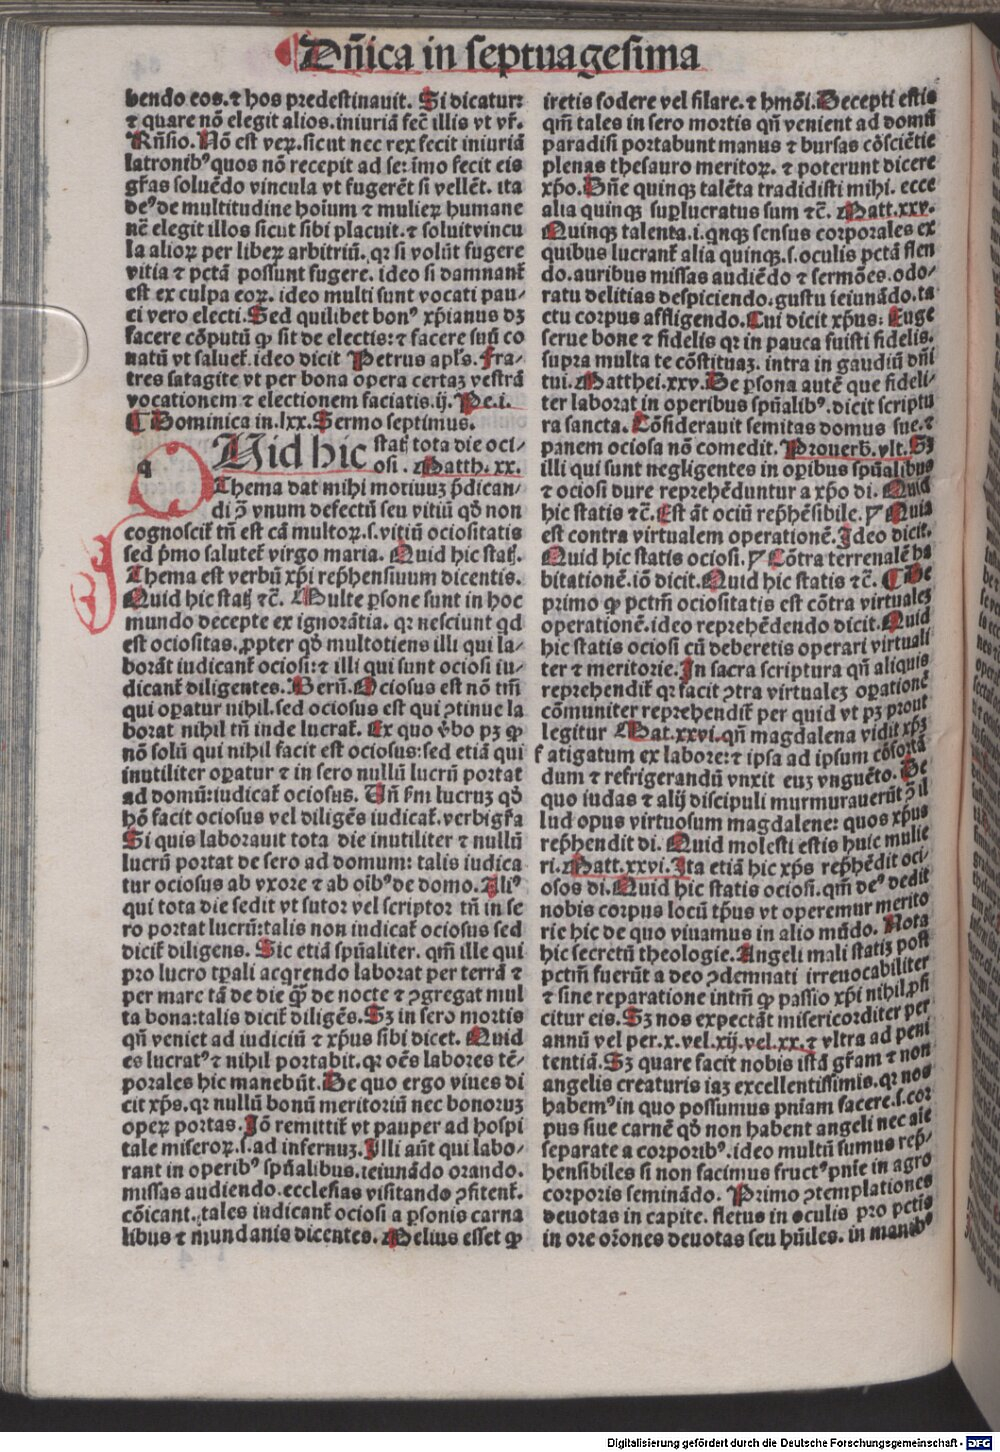 Dñica in septuagesima
bendo eos. ⁊ hos predestinauit. Si dicatur:
⁊ quare nõ elegit alios. iniuriã fec̃ illis vt vr̃.
Rñsio. Nõ est veꝝ. sicut nec rex fecit iniuriã
latronibꝰ quos nõ recepit ad se: ĩmo fecit eis
gr̃as soluẽdo vincula vt fugerẽt si vellẽt. ita
deꝰ de multitudine hoĩum ⁊ mulieꝝ humane
nẽ elegit illos sicut sibi placuit. ⁊ soluit vincu
la alioꝝ per libeꝝ arbitriũ. qꝛ si volũt fugere
vitia ⁊ pctã possunt fugere. ideo si damnant̃
est ex culpa eoꝝ. ideo multi sunt vocati pau-
ci vero electi. Sed quilibet bonꝰ xp̃ianus dꝫ
facere cõputũ ꝙ sit de electis: ⁊ facere suũ co
natũ vt saluet̃. ideo dicit Petrus apl̃s. Fra-
tres satagite vt per bona opera certaꝫ vestrã
vocationem ⁊ electionem faciatis. ij. Pe. i.
¶ Dominica in. lxx. Sermo septimus.
q
QUid hic statꝭ tota die oci-
osi. Matth. xx.
Thema dat mihi motiuuꝫ p̃dican-
di ꝯ̃ vnum defectũ seu vitiũ qð non
cognoscit̃ tñ est cã multoꝝ. s. vitiũ ociositatis
sed p̃mo salutet̃ virgo maria. Quid hic statꝭ.
Thema est verbũ xp̃i rep̃hensiuum dicentis.
Quid hic statꝭ ⁊c̃. Multe ꝑsone sunt in hoc
mundo decepte ex ignorãtia. qꝛ nesciunt qd
est ociositas. ꝓpter qð multotiens illi qui la-
borãt iudicant̃ ociosi: ⁊ illi qui sunt ociosi iu-
dicant̃ diligentes. Berñ. Ociosus est nõ tm̃
qui oꝑatur nihil. sed ociosus est qui ꝯtinue la
borat nihil tñ inde lucrat̃. Ex quo v̓bo pꝫ ꝙ
nõ solũ qui nihil facit est ociosus: sed etiã qui
inutiliter oꝑatur ⁊ in sero nullũ lucrũ portat
ad domũ: iudicat̃ ociosus. Vñ fm lucruꝫ qð
hõ facit ociosus vel diligẽs iudicat̃. verbigr̃a
Si quis laborauit tota die inutiliter ⁊ nullũ
lucrũ portat de sero ad domum: talis iudica
tur ociosus ab vxore ⁊ ab oĩbꝰ de domo. Aliꝰ
qui tota die sedit vt sutor vel scriptor tñ in se
ro portat lucrũ: talis non iudicat̃ ociosus sed
dicit̃ diligens. Sic etiã spũaliter. qm̃ ille qui
pro lucro tꝑali acq̃rendo laborat per terrã ⁊
per mare tã de die q̃ꝫ de nocte ⁊ ꝯgregat mul
ta bona: talis dicit̃ diligẽs. Sꝫ in sero mortis
qñ veniet ad iudiciũ ⁊ xp̃us sibi dicet. Quid
es lucratꝰ ⁊ nihil portabit. qꝛ oẽs labores tẽ-
porales hic manebũt. De quo ergo viues di
cit xp̃s. qꝛ nullũ bonũ meritoriũ nec bonoruꝫ
opeꝝ portas. Jõ remittit̃ vt pauper ad hospi
tale miseroꝝ. s. ad infernuꝫ. Illi aũt qui labo-
rant in operibꝰ spũalibus. ieiunãdo orando.
missas audiendo. ecclesias visitando ꝯfitent̃.
cõicant. tales iudicant̃ ociosi a ꝑsonis carna
libus ⁊ mundanis dicentes. Melius esset ꝙ
iretis fodere vel filare. ⁊ hmõi. Decepti estis
qm̃ tales in sero mortis qñ venient ad domũ
paradisi portabunt manus ⁊ bursas cõsciẽtie
plenas thesauro meritoꝝ. ⁊ poterunt dicere
xp̃o. Dñe quinqꝫ talẽta tradidisti mihi. ecce
alia quinqꝫ suꝑlucratus sum ⁊c̃. Matt. xxv.
Quinqꝫ talenta. i. qnqꝫ sensus corporales ex
quibus lucrant̃ alia quinqꝫ. s. oculis pctã flen
do. auribus missas audiẽdo ⁊ sermões. odo-
ratu delitias despiciendo. gustu ieiunãdo. ta
ctu corpus affligendo. Cui dicit xp̃us: Euge
serue bone ⁊ fidelis qꝛ in pauca fuisti fidelis.
supra multa te cõstituaꝫ. intra in gaudiũ dñi
tui. Matthei. xxv. De ꝑsona autẽ que fideli-
ter laborat in operibus spũalibꝰ. dicit scriptu
ra sancta. Cõsiderauit semitas domus sue. ⁊
panem ociosa nõ comedit. Prouerb. vlt. Sꝫ
illi qui sunt negligentes in oꝑibus spũalibus
⁊ ociosi dure reprehẽduntur a xp̃o di. Quid
hic statis ⁊c̃. Est ãt ociũ rep̃hẽsibile. ꝓ Quia
est contra virtualem operationẽ. Ideo dicit.
Quid hic statis ociosi. ꝓ Cõtra terrenalẽ ha
bitationẽ. iõ dicit. Quid hic statis ⁊c̃. ¶ De
primo ꝙ pctm̃ ociositatis est cõtra virtualeꝫ
operationẽ. ideo reprehẽdendo dicit. Quid
hic statis ociosi cũ deberetis operari virtuali
ter ⁊ meritorie. In sacra scriptura qñ aliquis
reprehendit̃ qꝛ facit ꝯtra virtualeꝫ oꝑationẽ
cõmuniter reprehendit̃ per quid vt pꝫ prout
legitur Mat. xxvi. qñ magdalena vidit xp̃ꝫ
fatigatum ex labore: ⁊ ipsa ad ipsum cõfortã
dum ⁊ refrigerandũ vnxit euꝫ vnguẽto. De
quo iudas ⁊ alij discipuli murmurauerũt ꝯ̃ il
lud opus virtuosum magdalene: quos xp̃us
rep̃hendit di. Quid molesti estis huic mulie
ri. Matt. xxvi. Ita etiã hic xp̃s rep̃hẽdit oci-
osos di. Quid hic statis ociosi. qm̃ deꝰ dedit
nobis corpus locũ tp̃us vt operemur merito
rie hic de quo viuamus in alio mũdo. Nota
hic secretũ theologie. Angeli mali statiꝫ post
pctm̃ fuerũt a deo ꝯdemnati irreuocabiliter
⁊ sine reparatione intm̃ ꝙ passio xp̃i nihil ꝓfi
citur eis. Sꝫ nos expectãt misericorditer per
annũ vel per. x. vel. xij. vel. xx. ⁊ vltra ad peni
tentiã. Sꝫ quare facit nobis istã gr̃am ⁊ non
angelis creaturis iaꝫ excellentissimis. qꝛ nos
habemꝰ in quo possumus pñiam facere. s. cor
pus siue carnẽ qð non habent angeli nec aĩe
separate a corporibꝰ. ideo multũ sumus rep̃-
hensibiles si non facimus fructꝰ pñie in agro
corporis seminãdo. Primo ꝯtemplationes
deuotas in capite. fletus in oculis pro pctis
in ore orõnes deuotas seu hũiles. in manibꝰ
Digitalisierung gefördert durch die Deutsche Forschungsgemeinschaft - DFG